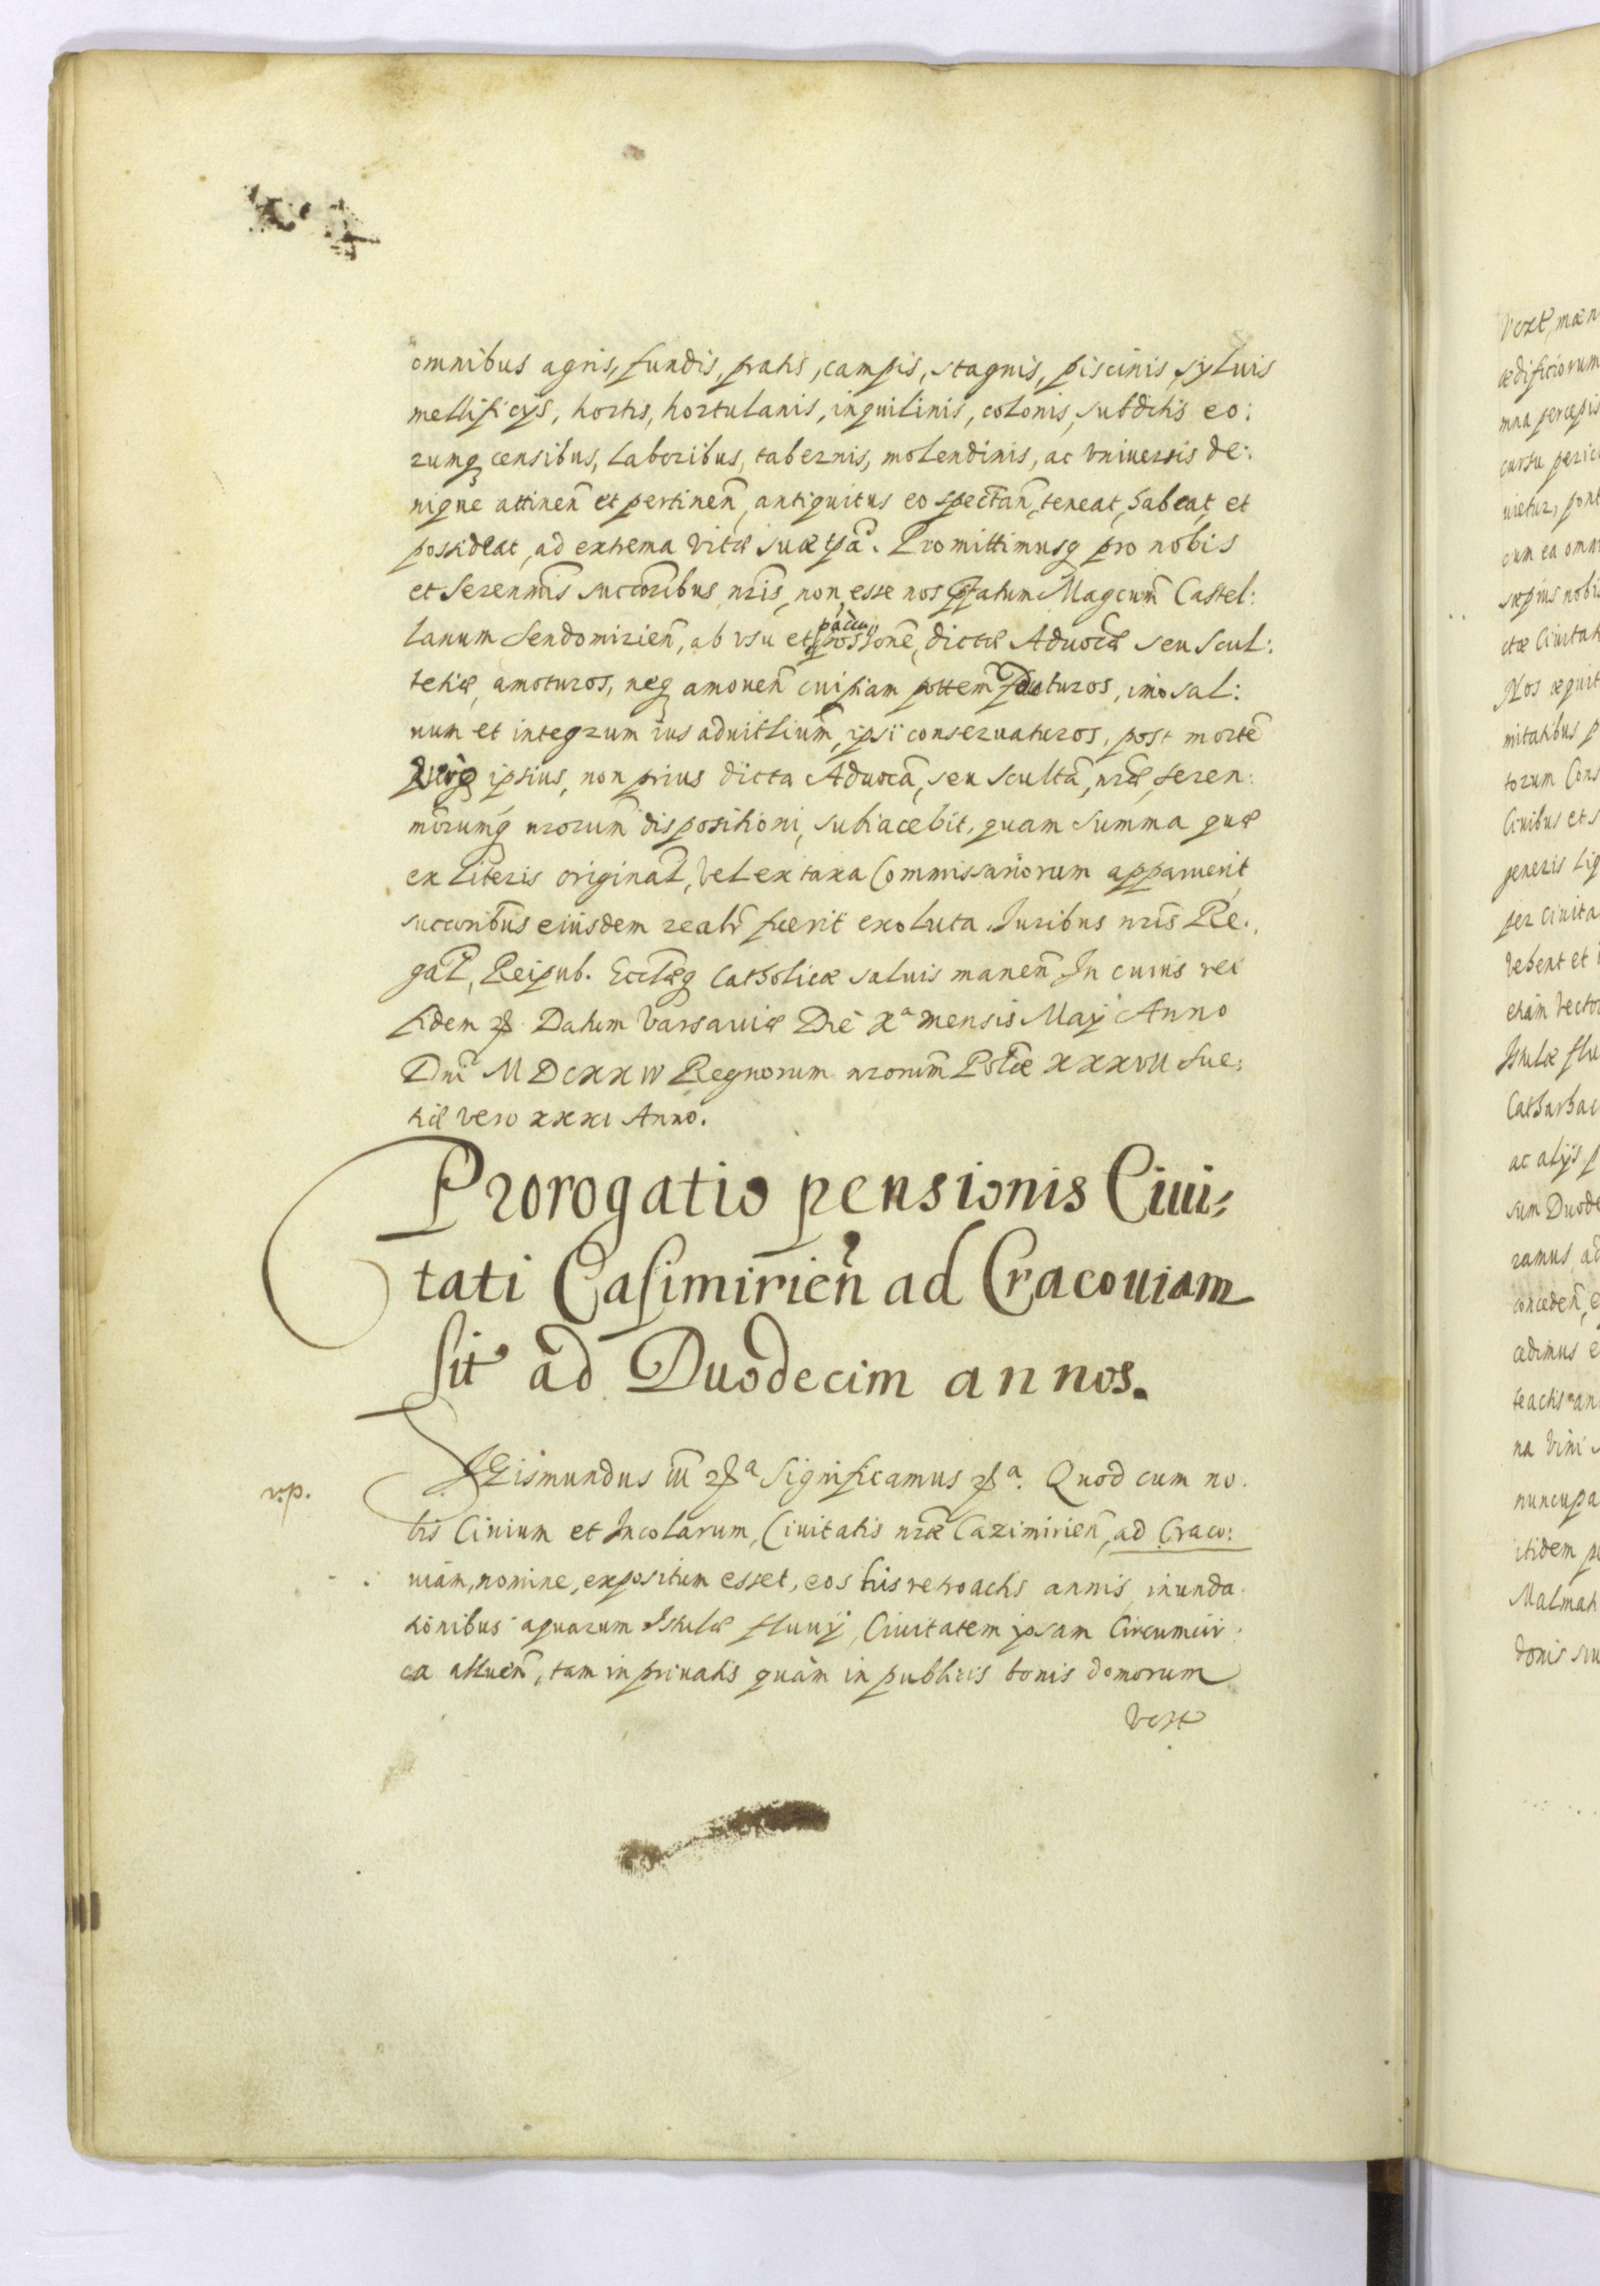 omnibus agris, fundis, pratis, campis, stagnis, piscinis, syluis
mellificys, hortis, hortulanis, inquilinis, colonis, subditis eo:
rumq censibus, laboribus, tabernis, molendinis, ac vniuersis de:
nique attinen et pertinen, antiquitus eo spectan, teneat, habeat, et
possideat, ad extrema vitæ suæ tpa. Promittimusq pro nobis
et Serenmis succoribus nris, non esse nos Magcum Castel:
lanum Sendomirien, ab vsu et possone, dictæ Aduocæ seu Scul:
tetiæ, amoturos, neq amouen cuipiam daturos, imo sal:
uum et integrum ius aduitlium, ipsi conseruaturos, post morte
ipsius, non prius dicta Aduoca, seu Sculta, nræ, seren:
morumq nrorum dispositioni, subiacebit, quam summa quæ
ex literis original, vel ex taxa Commissariorum apparuerit,
succoribus eiusdem realr fuerit exoluta. Iuribus nris Re.
gal, Reipub. Ecclæq Catholicæ saluis manen. In cuius rei
fidem Datum Varsauiæ Die Xa mensis Maij Anno
Dni MDCXXIV Regnorum nrorum Polæ XXXVII Sue:
tiæ vero XXXI Anno.
Prorogatio pensionis Ciui-
tati Casimirien ad Cracouiam
sit ad Duodecim annos.
rp.
Sigismundus III Significamus Quod cum no.
bis Ciuium et Incolarum, Ciuitatis nræ Cazimirien, ad Craco:
uiam, nomine, expositum esset, eos his retroactis annis inunda
tionibus aquarum Istulæ fluuij, Ciuitatem ipsam Circumcir:
ca alluen, tam in priuatis quàm in publicis bonis domorum
vert
Vert, mæn
ædificiorum
mna percepis
cursu peric
uietur, pont
cum ea omn
sæpius nobis
ctæ Ciuitat
Nos æquit
mitatibus p
torum Cons
Ciuibus et s
generis lig
per Ciuita
vehent et i
etiam vector
Istulæ flu
ac alijs p
sum Duode
ramus, ad
conceden, e
cedimus e
teactis an
na vini
nuncupa
itidem p
Malmat